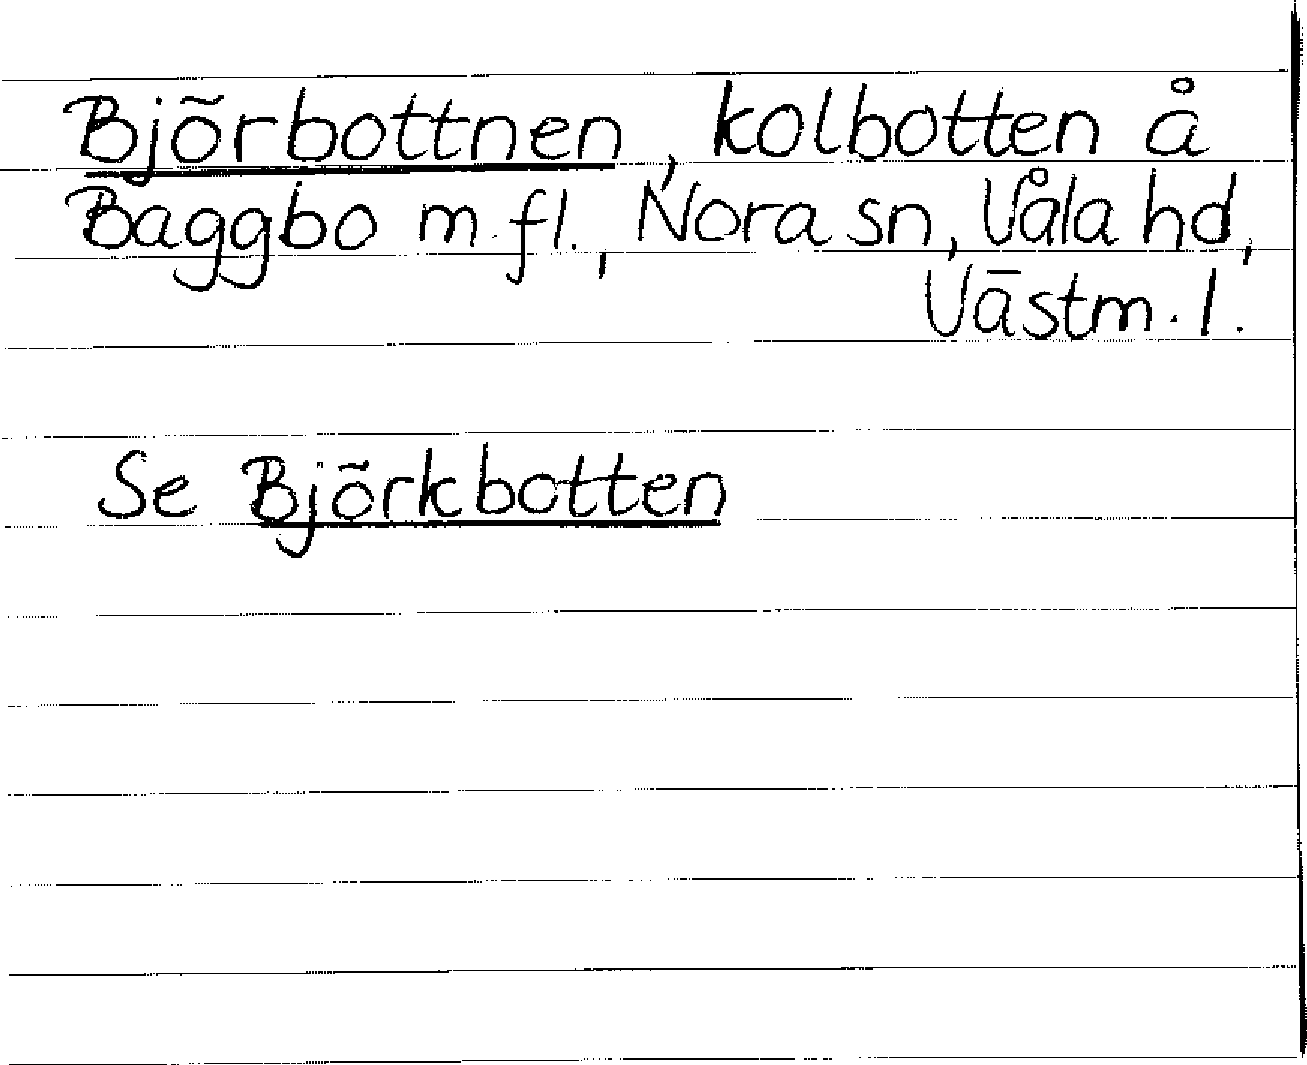 Björbottnen, kolbotten å
Baggbo m.fl., Nora sn, Våla hd,
Västm.l.
Se Björkbotten